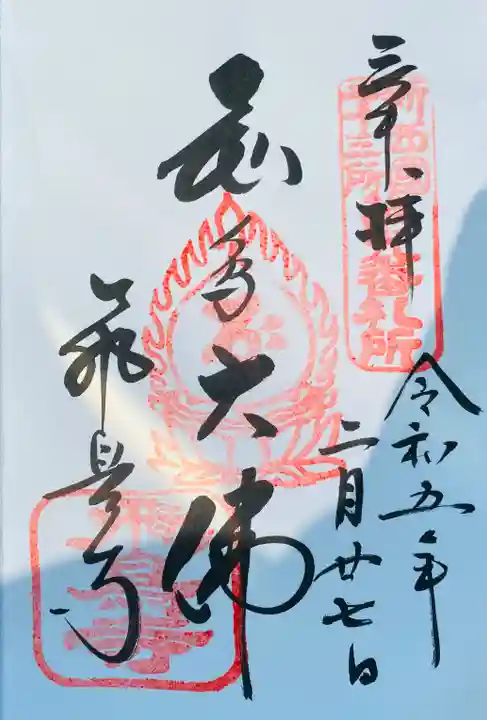 奉拝
新西国
三十三所
番札所
飛鳥大佛
飛鳥寺
令和五年
二月廿七日